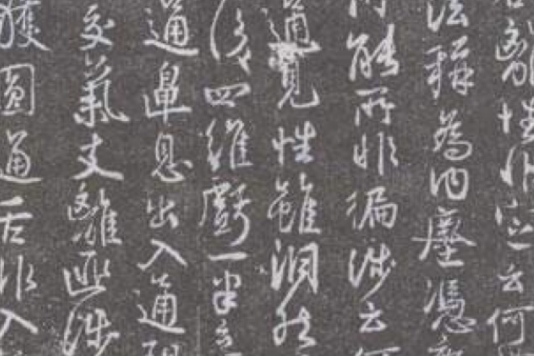 離性非定云何
法稱為內塵憑
能所非徧涉云
通見性雖洞然
後四維虧一半云
通鼻息出入通現
交氣支離匪涉
獲圓通舌非入